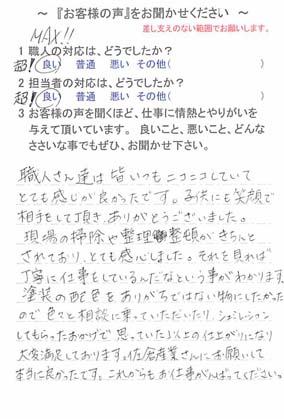 ～ 『お客様の声』をお聞かせください ～
差し支えのない範囲でお願いします。
MAX!!
1 職人の対応は、どうでしたか？
超! 良い 普通 悪い その他(
2 担当者の対応は、どうでしたか？
超! 良い 普通 悪い その他(
3 お客様の声を聞くほど、仕事に情熱とやりがいを
与えて頂いています。 良いこと、悪いこと、どんな
ささいな事でもぜひ、お聞かせ下さい。
職人さん達は皆いつもニコニコしていて
とても感じが良かったです。子供にも笑顔で
相手をして頂き、ありがとうございました。
現場の掃除や整理整頓がきちんと
されており、とても感心しました。それを見れば
丁寧に仕事をしているんだなという事がわかります。
塗装の配色をありがちではない物にしたかった
ので色々と相談に乗っていただいたり、シュミレーション
してもらったおかげで思っていた以上の仕上がりになり
大変満足しております。佐倉産業さんにお願いして
本当に良かったです。これからもお仕事がんばってください。